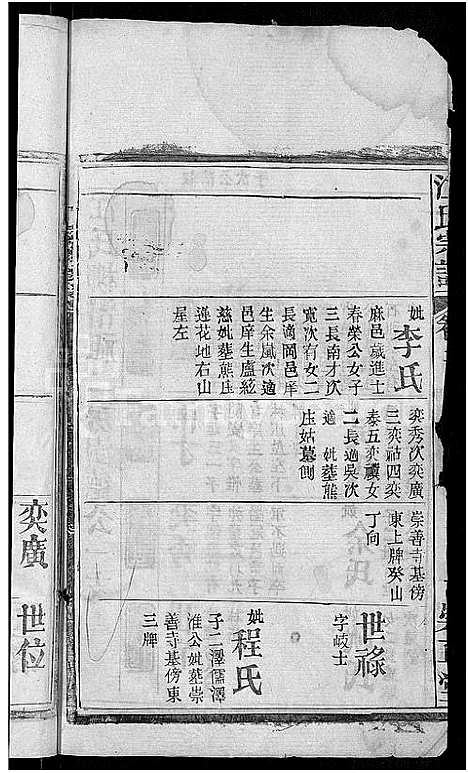 江氏宗譜
妣李氏
麻邑歲進士
春榮公女子
三長南才次
寬次有女二
長適岡邑庠
生余嵐次適
邑庠生盧紘
慈妣塟熊庄
蓮花地右山
屋左
奕秀次奕廣
三奕祜四奕
泰五奕禎女
二長適吳次
適 妣塟熊
庄姑墓側
崇善寺基傍
東上牌癸山
丁向
世祿
字岐士
妣程氏
子二澤儒澤
淮公妣塟崇
善寺基傍東
三牌
奕廣
世位